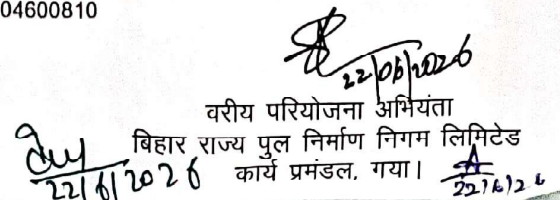 04600810
22/06/2026
वरीय परियोजना अभियंता
बिहार राज्य पुल निर्माण निगम लिमिटेड
कार्य प्रमंडल, गया।
22/6/2026
22/6/26